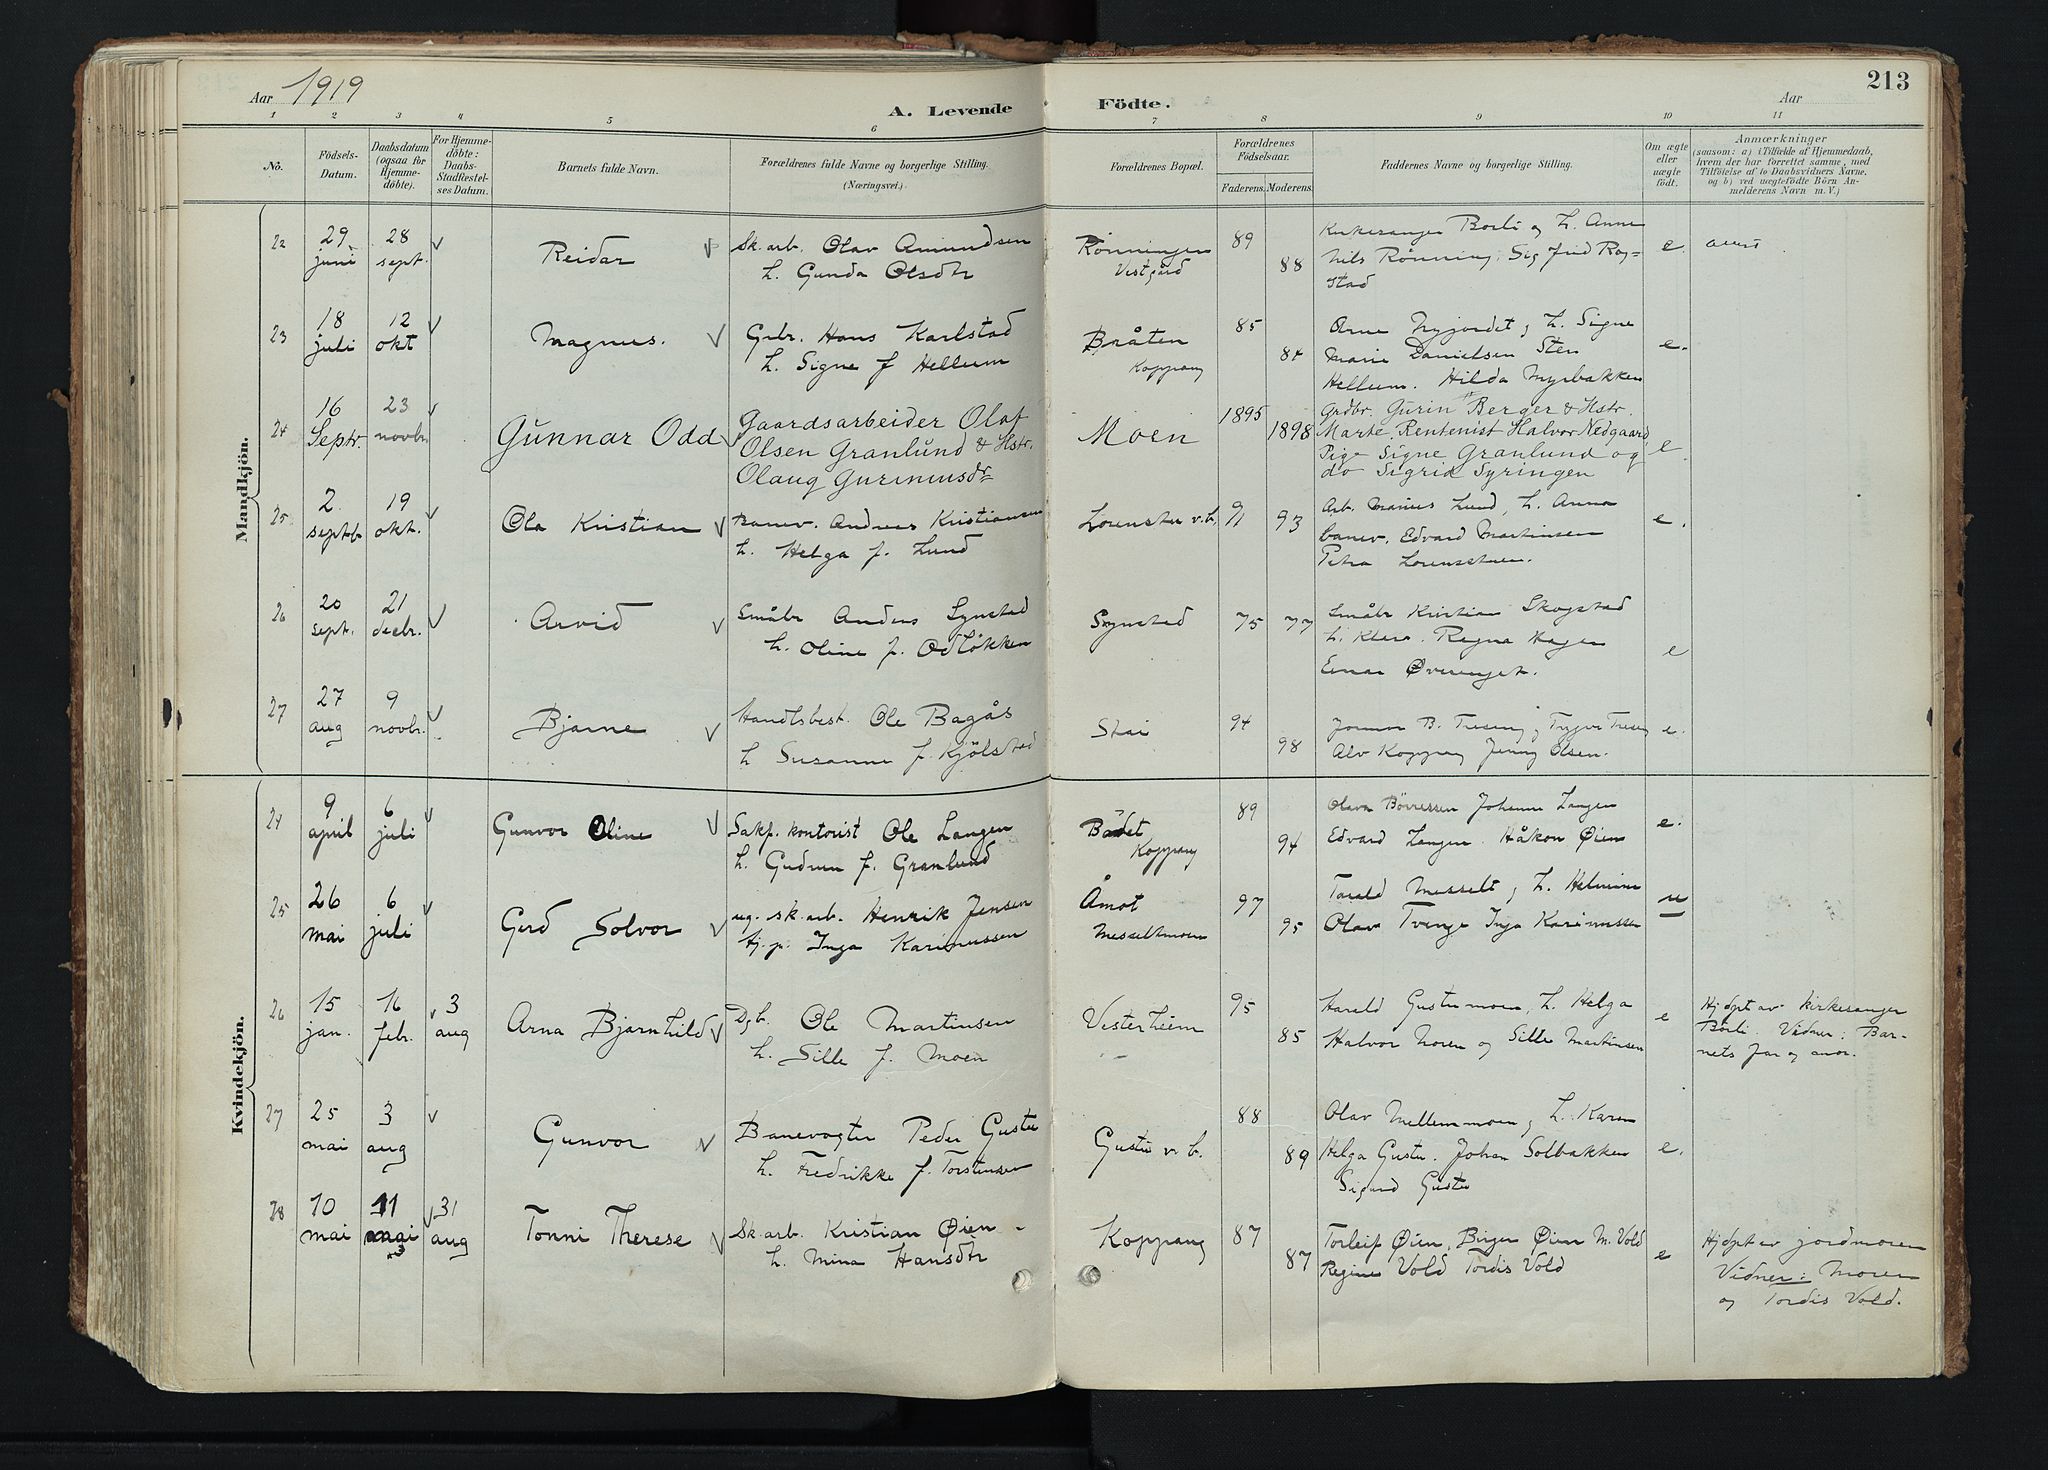 Aar 1919
A. Levende Födte.
Aar
213
1 2 3 4 5 6 7 8 9 10 11
No.
Födsels-Datum.
Daabsdatum (ogsaa for Hjemmedöbte).
For Hjemmedöbte: Daabs-Stadfæstelses Datum.
Barnets fulde Navn.
Forældrenes fulde Navne og borgerlige Stilling. (Næringsvei).
Forældrenes Bopæl.
Forældrenes Födselsaar.
Faderens. Moderens.
Faddernes Navne og borgerlige Stilling.
Om ægte eller uægte födt.
Anmærkninger
(saasom: a) i Tilfælde af Hjemmedaab,
hvem der har forrettet samme, med
Tilföielse af to Daabsvidners Navne,
og b) ved uægtefödte Börn Anmelderens Navn m. V.)
Mandkjön.
22 29 juni 28 sept. Reidar
Sk. arb. Olav Amundsen
h. Gunda Olsdtr
Rønningen Vestgård 89 88
Kirkesanger Borli og h. Anne
Nils Rønning, Sigfrid Rogstad
e.
23 18 juli 12 okt Magnus.
Gbr. Hans Karlstad
h. Signe f Hellum
Bråten Koppang 85 84
Arne Nyjordet, h. Signe
Marie Danielsen Sten
Hellum. Hilda Myrbakken
e.
24 16 Septr. 23 novbr. Gunnar Odd
Gaardsarbeider Olaf
Olsen Granlund & Hstr.
Olaug Gurinusdr
Moen 1895 1898
Grdbr. Gurin Berger & Hstr.
Marte. Rentenist Halvor Nedgaard
Pige Signe Granlund og
do Sigrid Syringen
e.
25 2 septb 19 okt. Ola Kristian
Banev. Andreas Kristiansen
h. Helga f. Lund
Lorensten v.b. 91 93
Arb. Marius Lund, h. Anna
banev. Edvard Martinsen
Petra Lorensstuen.
e.
26 20 sept. 21 decbr. Arvid
Småbr Anders Synstad
h. Oline f. Odløkken
Synstad 75 77
Småbr Kristian Skogstad
h. Klara. Ragna Hagen
Einar Øvrsenget.
e
27 27 aug 9 novbr. Bjarne
Handlsbest. Ole Bagås
h Susanne f. Kjølstad
Stai 94 98
B. Treseng, Trygve Treseng
Alv Koppang Jenny Olsen.
e.
Kvindekjön.
24 9 april 6 juli Gunvor Oline
Sakf. kontorist Ole Langen
h. Gudrun f. Granlund
Badet Koppang 89 94
Olava Børressen Johanne Langen
Edvard Langen. Håkon Øien
e.
25 26 mai 6 juli Gerd Solvor
ug. sk. arb. Henrik Jensen
tj. p. Inga Karinussen
Åmot Messeltmoen 97 95
Torald Messelt, h. Helmine
Olav Tvenge Inga Karinussen
u
26 15 jan. 16 febr. 3 aug Arna Bjarnhild
Dgb. Ole Martinsen
h. Sille f. Moen
Vesterheim 95 85
Harald Gustumoen, h. Helga
Halvor Noren og Sille Martinsen
e
Hjdpt av kirkesanger
Borli. Vidner: Barnets
far og mor.
27 25 mai 3 aug Gunvor
Banevogter Peder Gustu
h. Fredrikke f. Torstensen
Gustu v. b. 88 89
Olav Mellemmoen, h. Karen
Helga Gustu. Johan Solbakken
Sigurd Gustu
e.
28 10 mai 11 mai 31 aug Tonni Therese
Sk. arb. Kristian Øien
h. Mina Hansdtr
Koppang 87 87
Torleif Øien, Birger Øien M. Vold
Regine Vold Tordis Vold
e
Hjdpt av jordmoren
Vidner: Moren
og Tordis Vold.